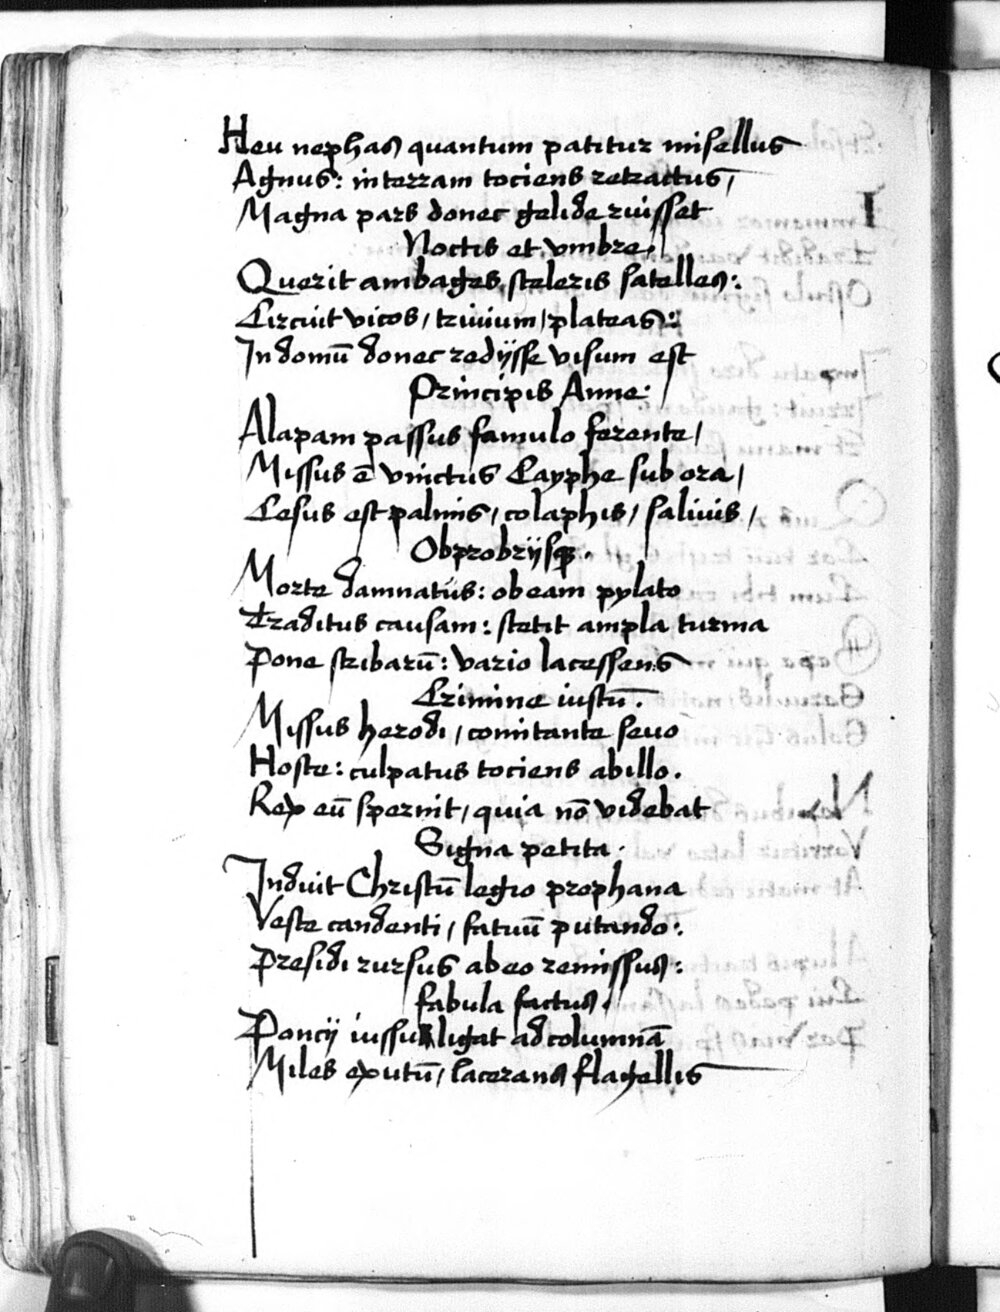 Heu nephas quantum patitur misellus
Agnus: in terram tociens retractus /
Magna pars donec gelide ruisset
Noctis et vmbre.
Querit ambages sceleris satelles:
Circuit vicos / triuium / plateas:
In domū donec redijsse visum est
Principis Anne:
Alapam passus famulo ferente /
Missus ē vinctus Cayphe sub ora /
Cesus est palmis / colaphis / saliuis /
Obprobrijsqꝫ.
Morte damnatus: obeam pylato
Traditus causam: stetit ampla turma
Pone scribarū: vario lacessens
Crimine iustū.
Missus herodi / comitante seuo
Hoste: culpatus tociens ab illo.
Rex eū spernit / quia nō videbat
Signa petita.
Induit Christū legio prophana
Veste candenti / fatuū putando:
Presidi rursus ab eo remissus:
fabula factus.
Poncij iussu ligat ad columnā
Miles exutū / lacerans flagellis